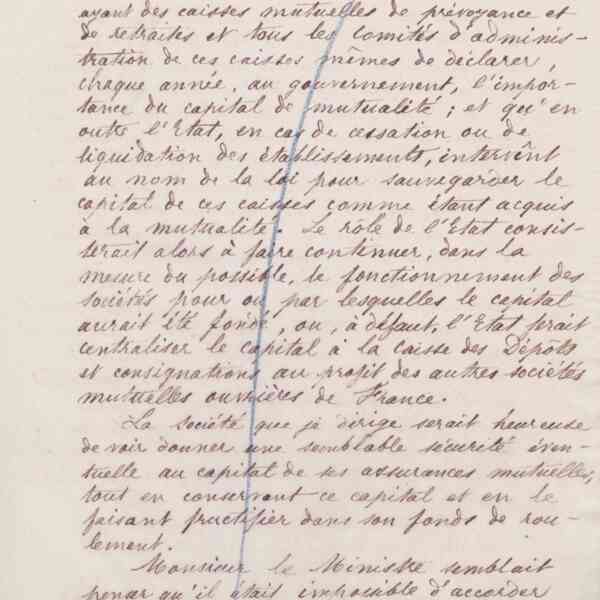 ayant des caisses mutuelles de prévoyance et
de retraites et tous les Comités d'adminis-
tration de ces caisses mêmes de déclarer,
chaque année, au gouvernement, l'impor-
tance du capital de mutualité ; et qu'en
outre l'Etat, en cas de cessation ou de
liquidation des établissements, intervînt
au nom de la loi pour sauvegarder le
capital de ces caisses comme étant acquis
à la mutualité. Le rôle de l'Etat consis-
terait alors à faire continuer, dans la
mesure du possible, le fonctionnement des
sociétés pour ou par lesquelles le capital
aurait été fondé, ou, à défaut, l'Etat ferait
centraliser le capital à la Caisse des Dépôts
et consignations au profit des autres sociétés
mutuelles ouvrières de France.
La Société que je dirige serait heureuse
de voir donner une semblable sécurité éven-
tuelle au capital de ses assurances mutuelles,
tout en conservant ce capital et en le
faisant fructifier dans son fonds de rou-
lement.
Monsieur le Ministre semblait
penser qu'il était impossible d'accorder